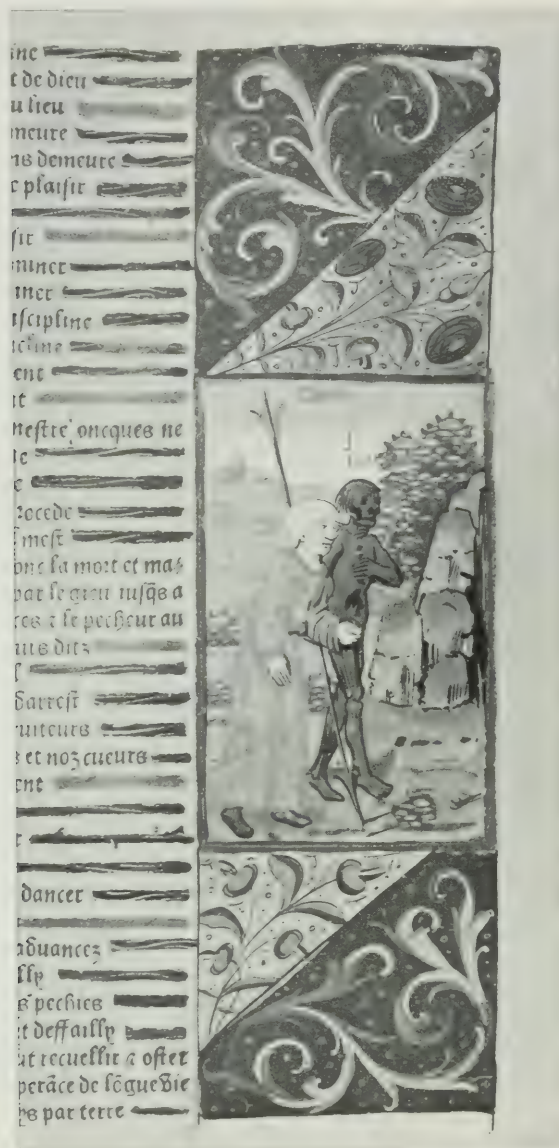 ine
t de dieu
u lieu
meure
ns demeure
c plaisir
sir
miner
iner
iscipline
icline
ent
it
nestre oncques ne
te
e
rocede
mest
onc la mort et ma⸗
par le gieu iusq̃s a
ces ⁊ le pecheur au
uis ditz
s
darrest
ruiteurs
s et noz cueurs
ent
r
dancer
advancez
lly
s pechies
t deffailly
ut recueillir a oster
perãce de lõgue vie
ps par terre